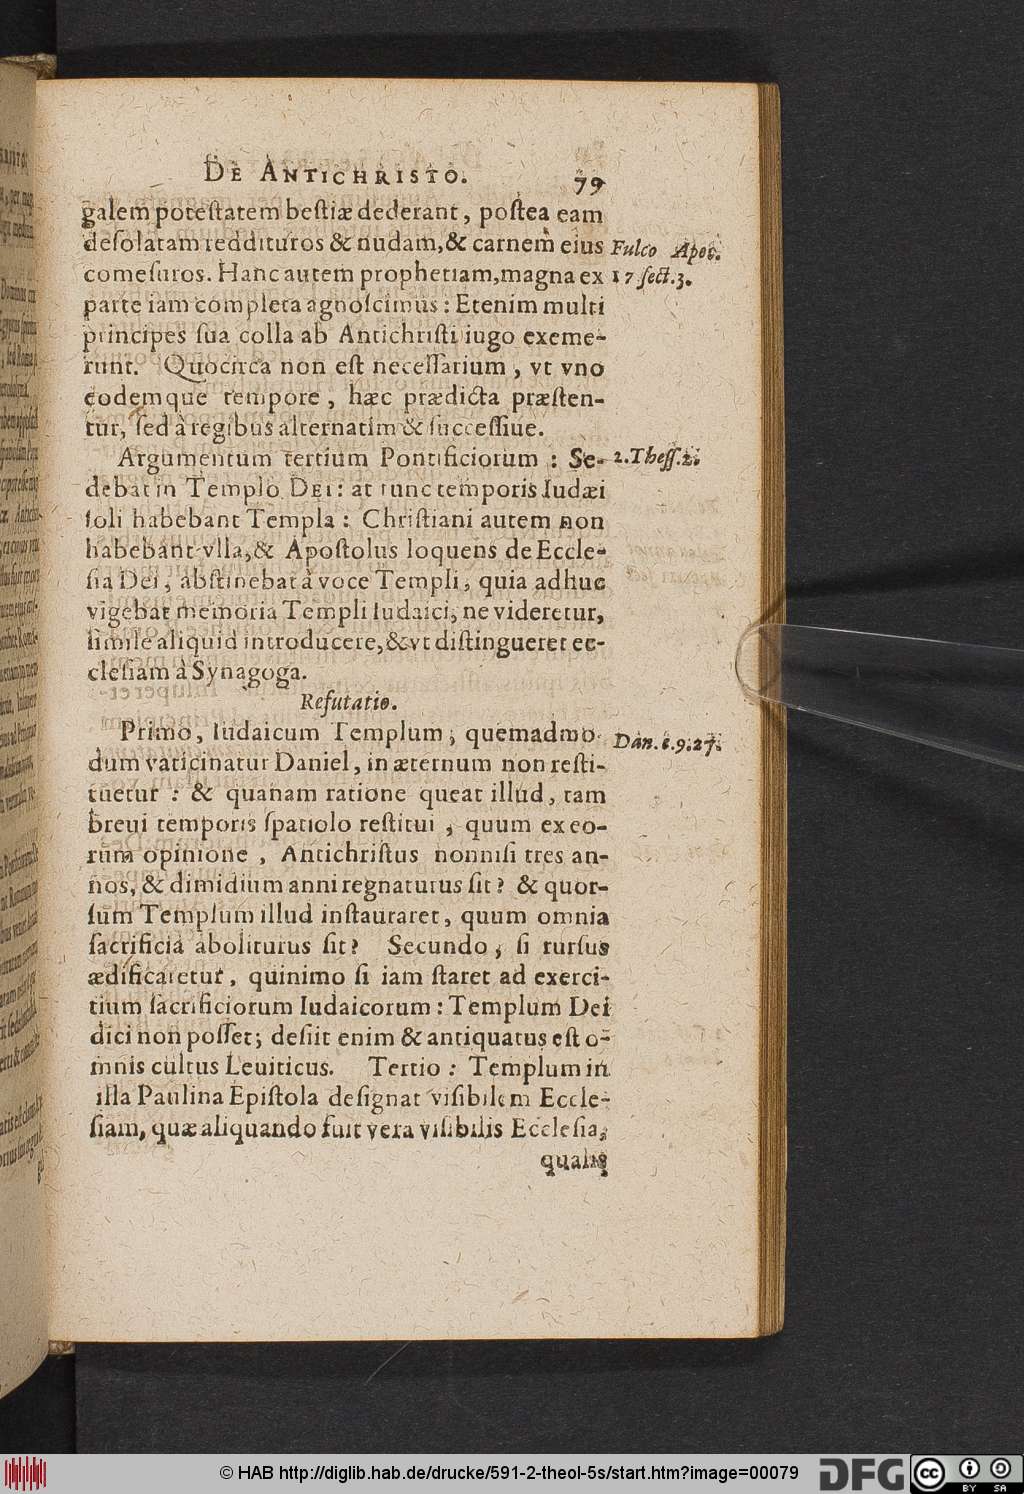 DE ANTICHRISTO. 79
galem potestatem bestiæ dederant, postea eam
desolatam reddituros & nudam, & carnem eius Fulco Apoc.
comesuros. Hanc autem prophetiam, magna ex 17 sect. 3.
parte iam completa agnoscimus: Etenim multi
principes sua colla ab Antichristi iugo exeme-
runt. Quocirca non est necessarium, vt vno
eodemque tempore, hæc prædicta præsten-
tur, sed à regibus alternatim & successiue.
Argumentum tertium Pontificiorum: Se- 2. Thess. 2.
debat in Templo DEI: at tunc temporis Iudæi
soli habebant Templa: Christiani autem non
habebant vlla, & Apostolus loquens de Eccle-
sia Dei, abstinebat à voce Templi, quia adhuc
vigebat memoria Templi Iudaici, ne videretur,
simile aliquid introducere, & vt distingueret ec-
clesiam à Synagoga.
Refutatio.
Primò, Iudaicum Templum, quemadmo- Dan. c. 9. 27.
dum vaticinatur Daniel, in æternum non resti-
tuetur: & quanam ratione queat illud, tam
breui temporis spatiolo restitui, quum ex eo-
rum opinione, Antichristus nonnisi tres an-
nos, & dimidium anni regnaturus sit? & quor-
sum Templum illud instauraret, quum omnia
sacrificia aboliturus sit? Secundo, si rursus
ædificaretur, quinimo si iam staret ad exerci-
tium sacrificiorum Iudaicorum: Templum Dei
dici non posset; desiit enim & antiquatus est o-
mnis cultus Leuiticus. Tertio: Templum in
illa Paulina Epistola designat visibilem Eccle-
siam, quæ aliquando fuit vera visibilis Ecclesia,
qualis
© HAB http://diglib.hab.de/drucke/591-2-theol-5s/start.htm?image=00079
DFG
cc
BY SA